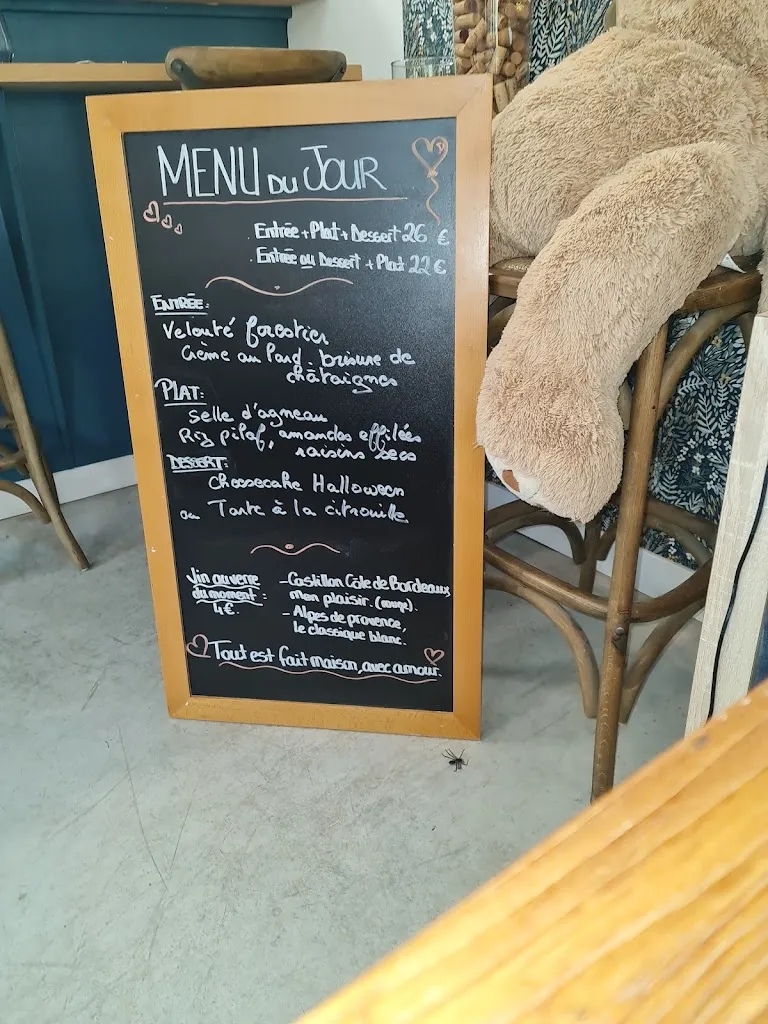 MENU DU JOUR
. Entrée + Plat + Dessert 26 €
. Entrée ou Dessert + Plat 22 €
ENTRÉE:
Velouté forestier
Crème au Lard. brisure de
châtaignes
PLAT:
selle d'agneau
Riz pilaf, amandes effilées
raisins secs
DESSERT:
cheesecake Halloween
ou Tarte à la citrouille
Vin au verre
du moment:
4€.
- Castillon Côte de Bordeaux
mon plaisir. (rouge).
- Alpes de provence,
le classique blanc.
Tout est fait maison, avec amour.